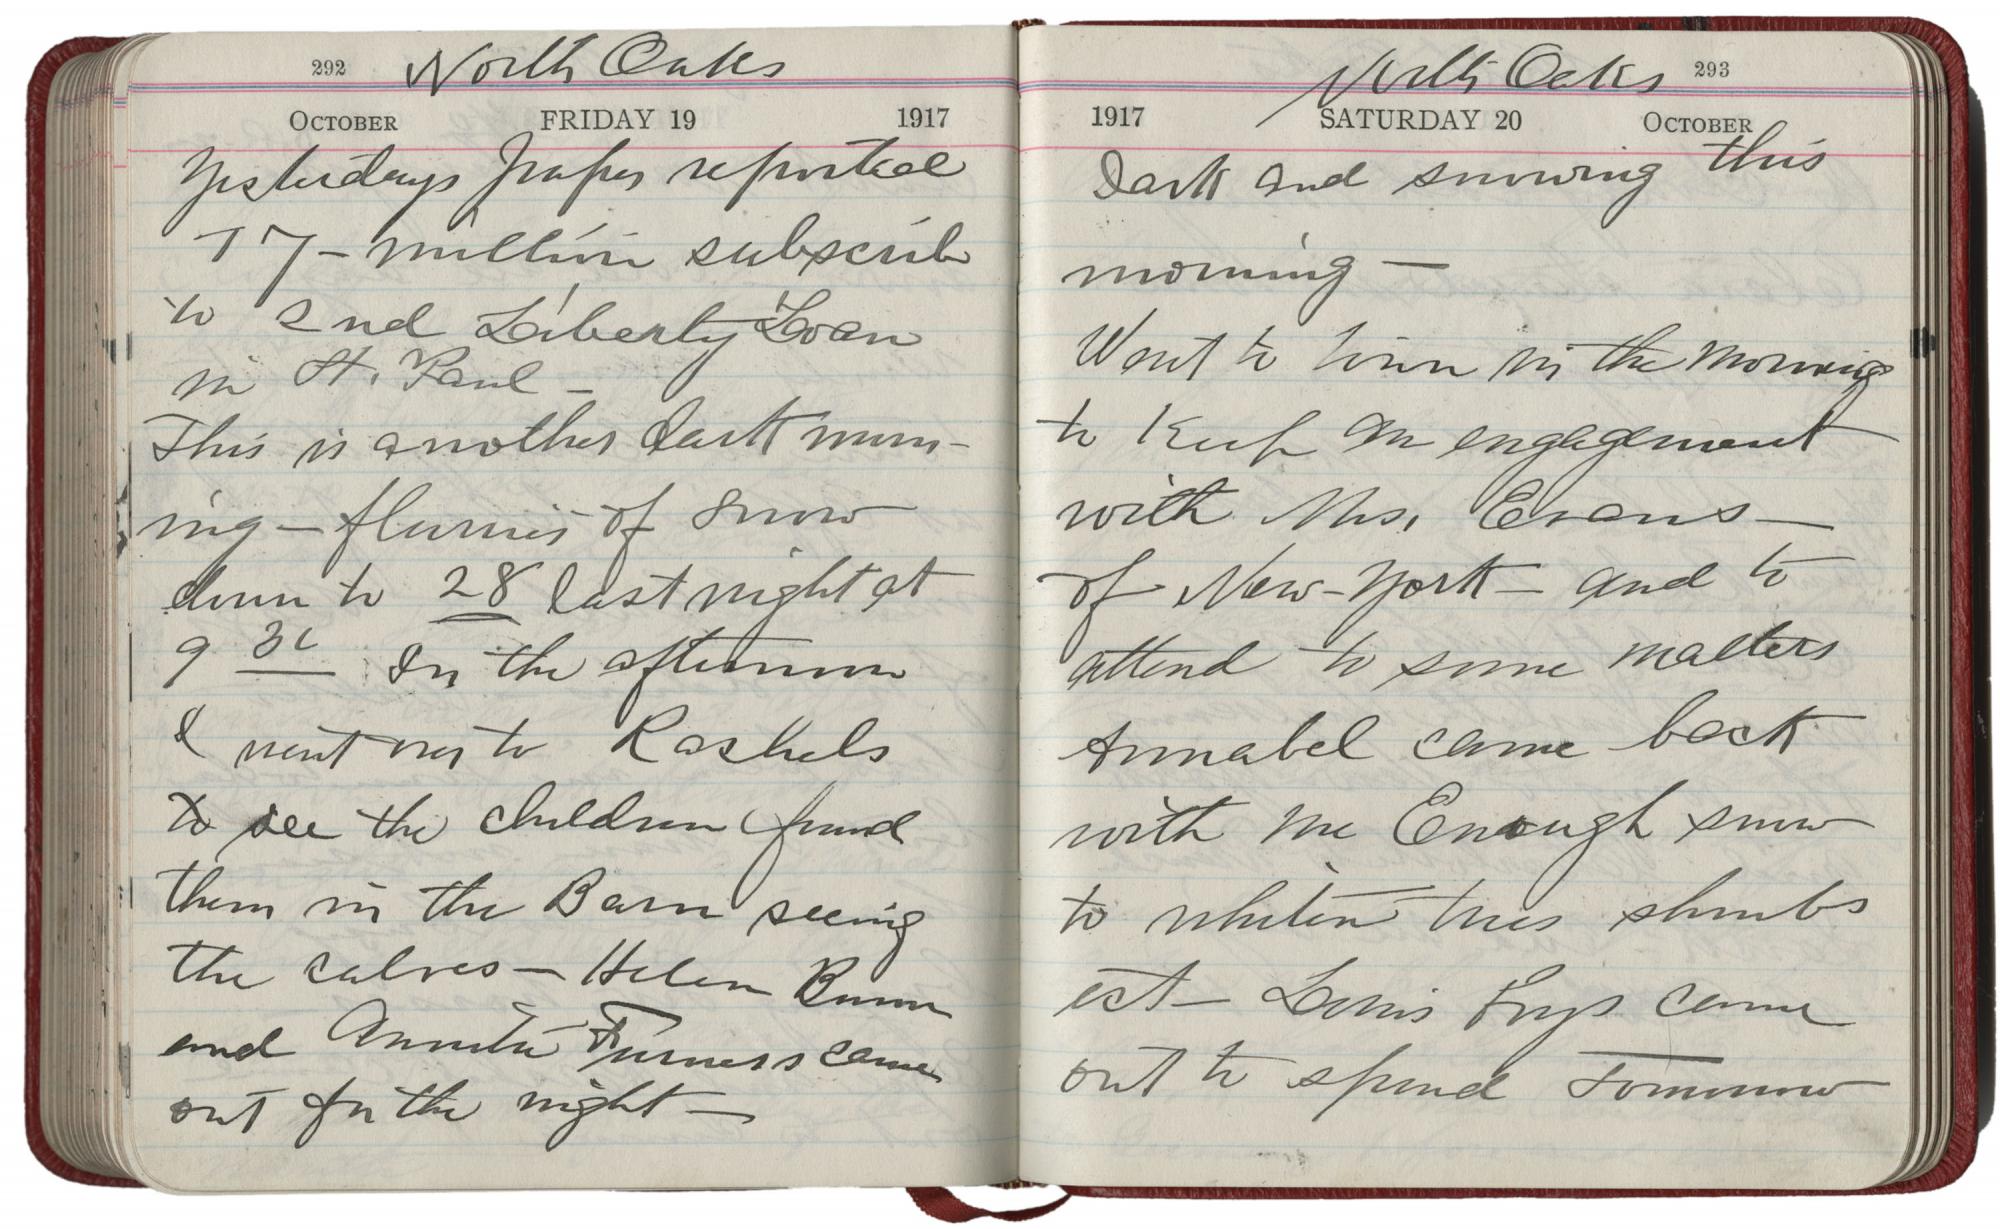 292 North Oaks
October FRIDAY 19 1917
Yesterdays paper reported
17-million subscrib
to 2nd Liberty Loan
in St. Paul -
This is another dark morn-
ing - flurries of snow
down to 28 last night at
9 30 In the afternoon
I went over to Raskels
to see the children found
them in the Barn seeing
the calves - Helen Bunn
and Annette Furness came
out for the night -
North Oaks 293
1917 SATURDAY 20 October
Dark and snowing this
morning -
Went to town in the morning
to Keep an engagement
with Mrs. Evans -
of New-York - and to
attend to some matters
Annabel came back
with me Enough snow
to whiten trees shrubs
ect - Louis came
out to spend Tomorrow